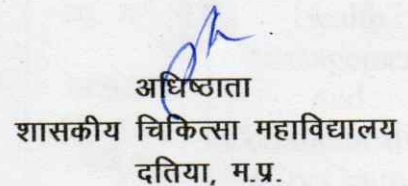 अधिष्ठाता
शासकीय चिकित्सा महाविद्यालय
दतिया, म.प्र.